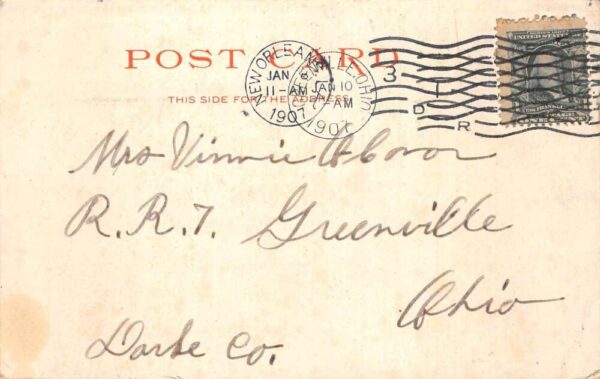 POST CARD
THIS SIDE FOR THE ADDRESS
NEW ORLEANS
JAN
11-AM
1907
LE.OHIO
JAN 10
7-AM
1907
3
D
R
UNITED STATES
Mrs Vinnie
R.R.7. Greenville
Ohio
Darke Co.